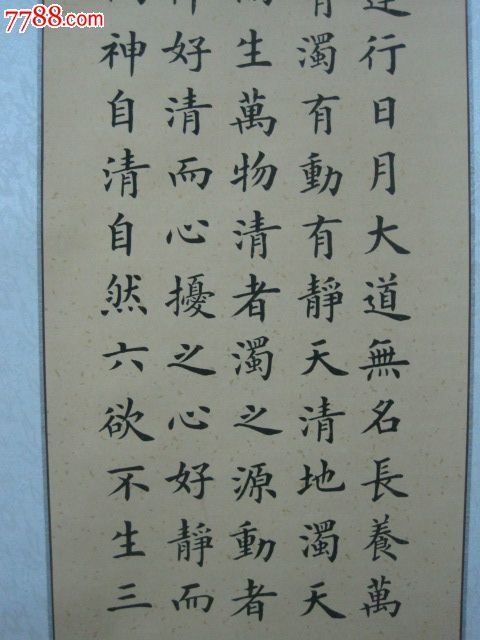 7788.com
運行日月大道無名長養萬
有濁有動有靜天清地濁天
而生萬物清者濁之源動者
神好清而心擾之心好靜而
神自清自然六欲不生三